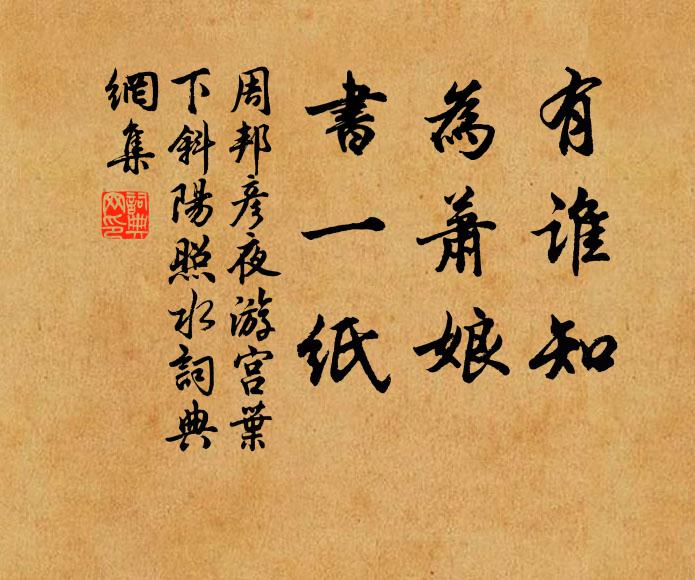 有誰知
為蕭娘
書一紙
周邦彥夜游宮葉
下斜陽照水詞典
網集
詞典
网印